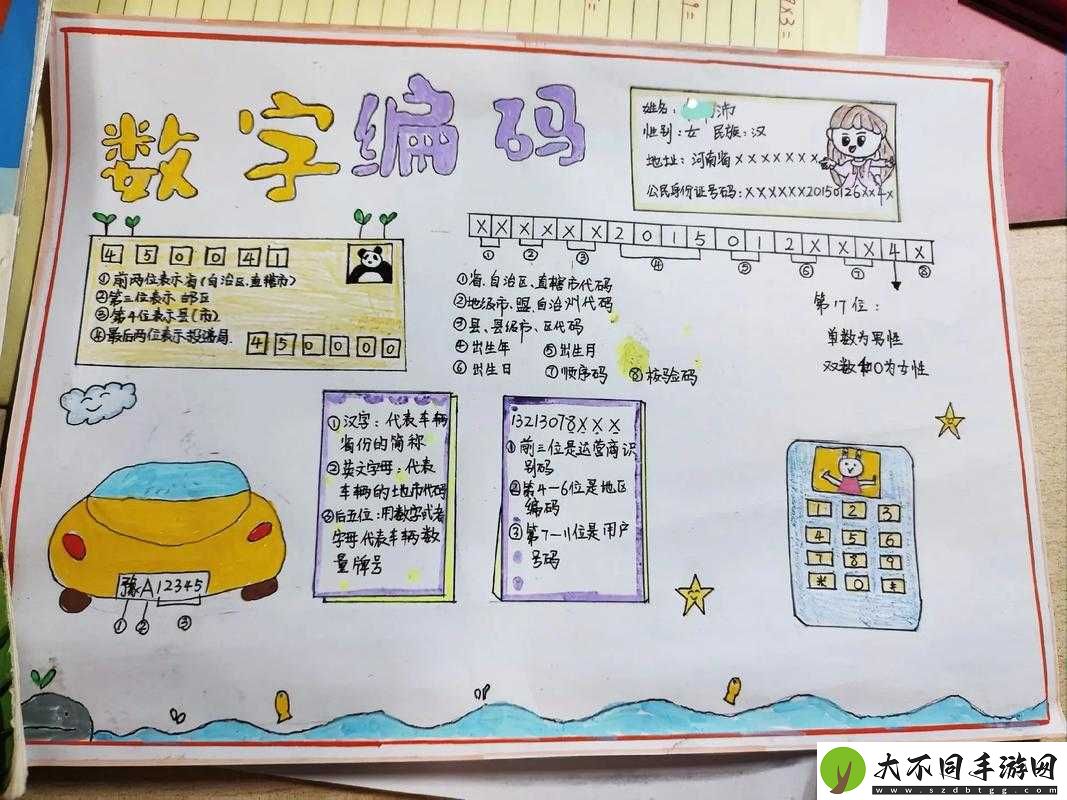 数字编码
姓名: 沛
性别:女 民族:汉
地址:河南省XXXXXXX
公民身份证号码:XXXXXX20150126XX4X
4 5 0 0 4 1
①前两位表示省(自治区、直辖市)
②第三位表示邮区
③第4位表示县(市)
④最后两位表示投递局.
4 5 0 0 0 0
X X X X X X 2 0 1 5 0 1 2 X X X 4 X
① ② ③ ④ ⑤ ⑥ ⑦ ⑧
①省、自治区、直辖市代码
②地级市、盟、自治州代码
③县、县级市、区代码
④出生年 ⑤出生月
⑥出生日 ⑦顺序码 ⑧校验码
第17位:
单数为男性
双数和0为女性
①汉字:代表车辆
省份的简称
②英文字母:代表
车辆的地市代码
③后五位:用数字或者
字母代表车辆数
量牌号
13213078XXX
①前三位是运营商识
别码
②第4—6位是地区
编码
③第7—11位是用户
号码
豫A12345
① ② ③
1 2 3
4 5 6
7 8 9
* 0 #
大不同手游网
www.szdbtgg.com